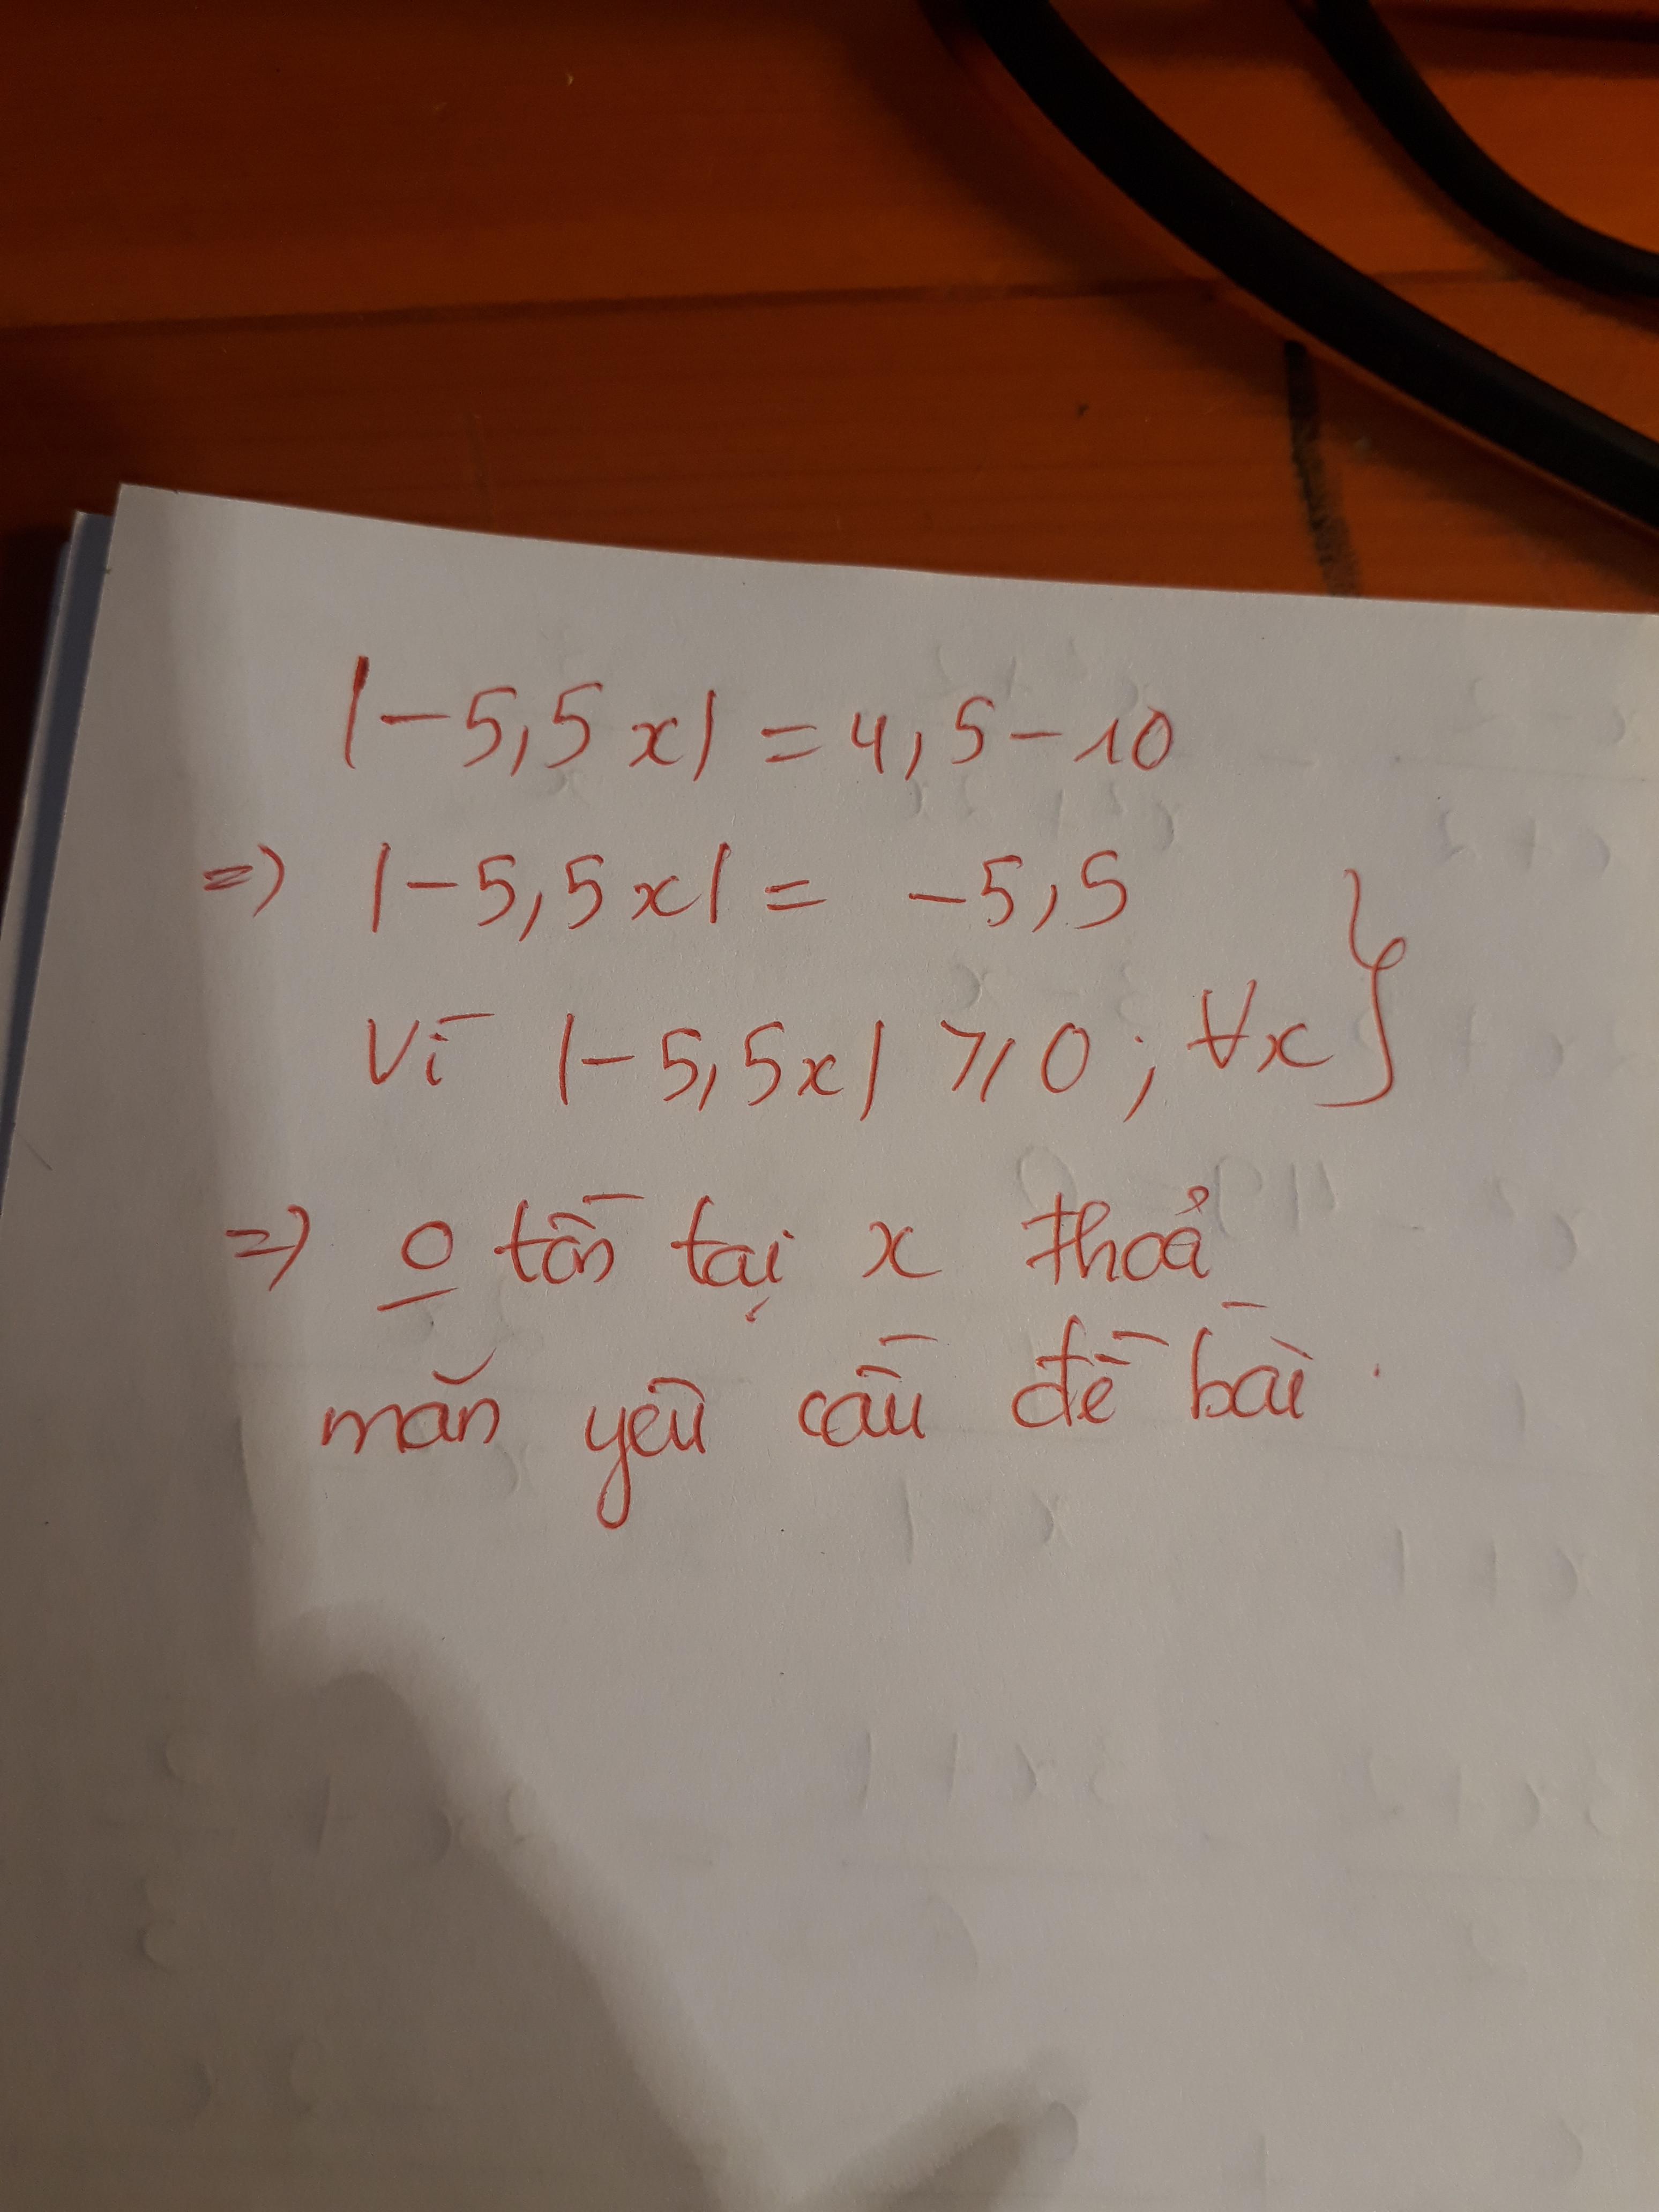 |-5,5x| = 4,5-10
=> |-5,5x| = -5,5
Vì |-5,5x| ⩾ 0; ∀x }
=> o̲ tồn tại x thoả
mãn yêu cầu đề bài.